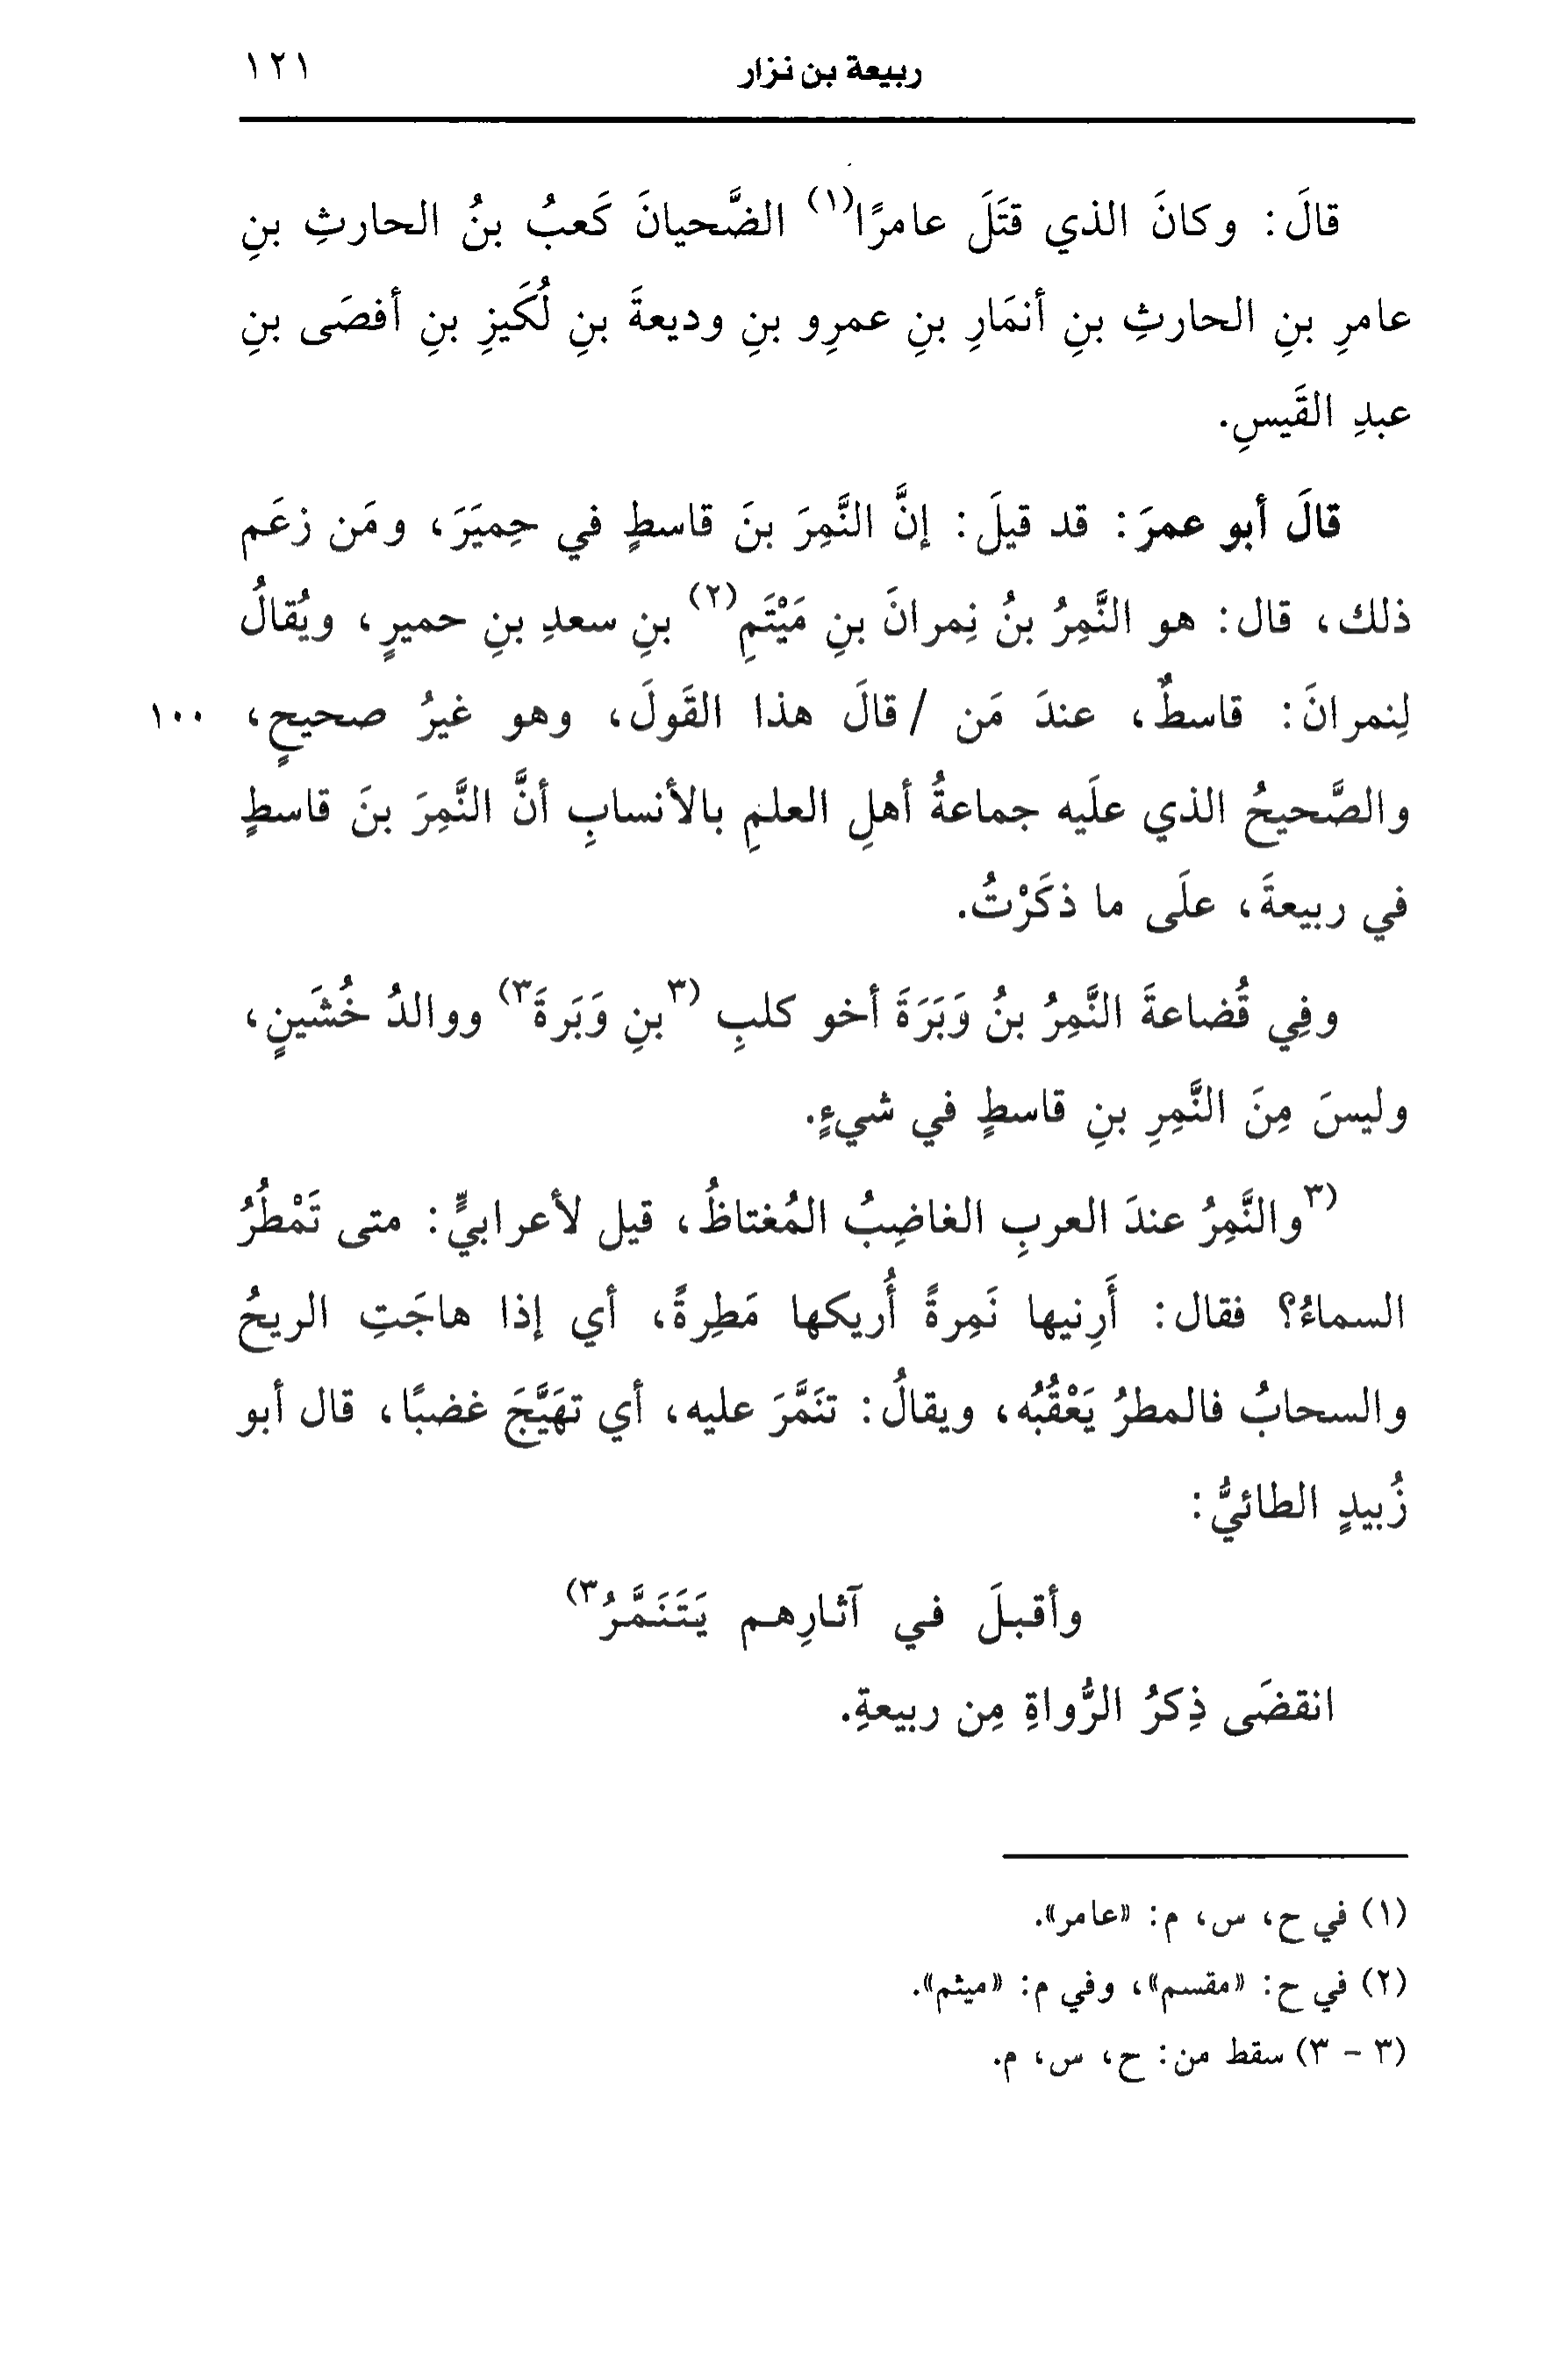 ربيعة بن نزار ١٢١
قالَ: وكانَ الذي قتَلَ عامرًا(١) الضَّحيانَ كَعبُ بنُ الحارثِ بنِ
عامرِ بنِ الحارثِ بنِ أنمَارِ بنِ عمرِو بنِ وديعةَ بنِ لُكَيزِ بنِ أفصَى بنِ
عبدِ القَيسِ.
قالَ أبو عمرَ: قد قيلَ: إنَّ النَّمِرَ بنَ قاسطٍ في حِميَرَ، ومَن زعَم
ذلك، قال: هو النَّمِرُ بنُ نِمرانَ بنِ مَيْتَمِ(٢) بنِ سعدِ بنِ حميرٍ، ويُقالُ
لِنمرانَ: قاسطٌ، عندَ مَن /قالَ هذا القَولَ، وهو غيرُ صحيحٍ، ١٠٠
والصَّحيحُ الذي علَيه جماعةُ أهلِ العلمِ بالأنسابِ أنَّ النَّمِرَ بنَ قاسطٍ
في ربيعةَ، علَى ما ذكَرْتُ.
وفِي قُضاعةَ النَّمِرُ بنُ وَبَرَةَ أخو كلبِ (٣بنِ وَبَرةَ٣) ووالدُ خُشَينٍ،
وليسَ مِنَ النَّمِرِ بنِ قاسطٍ في شيءٍ.
(٣والنَّمِرُ عندَ العربِ الغاضِبُ المُغتاظُ، قيل لأعرابيٍّ: متى تَمْطُرُ
السماءُ؟ فقال: أَرِنيها نَمِرةً أُريكها مَطِرةً، أي إذا هاجَتِ الريحُ
والسحابُ فالمطرُ يَعْقُبُه، ويقالُ: تنَمَّرَ عليه، أي تهَيَّجَ غضبًا، قال أبو
زُبيدٍ الطائيُّ:
وأقبلَ في آثارِهم يَتَنَمَّرُ٣)
انقضَى ذِكرُ الرُّواةِ مِن ربيعةِ.
(١) في ح، س، م: «عامر».
(٢) في ح: «مقسم»، وفي م: «ميثم».
(٣ - ٣) سقط من: ح، س، م.